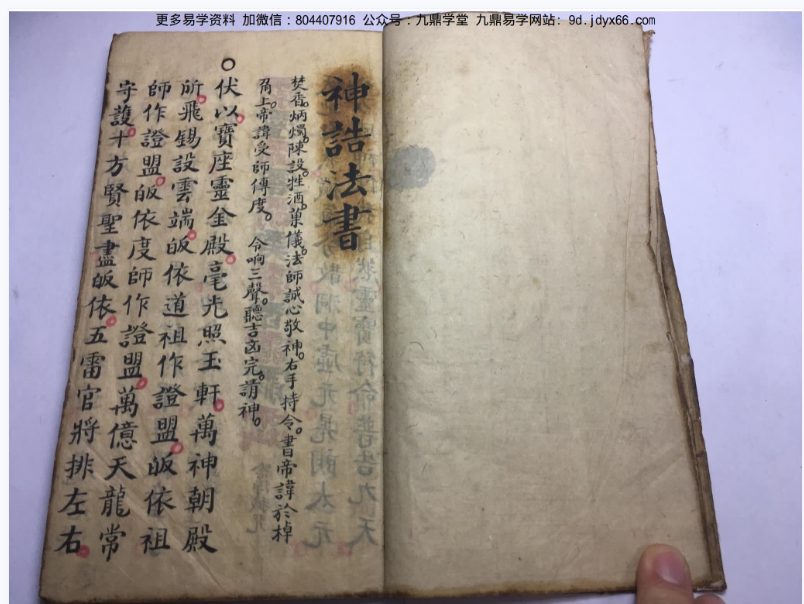 更多易学资料 加微信：804407916 公众号：九鼎学堂 九鼎易学网站：9d.jdyx66.com
神誥法書
焚香。炳燭。陳設牲酒。菓儀。法師誠心敬神。右手持令。書帝諱於棹
角上。帝諱受師傳度。 令响三聲。聽吉凶完。請神。
○伏以寶座靈金殿。毫光照玉軒。萬神朝殿
所。飛錫設雲端。皈依道祖作證盟。皈依祖
師作證盟。皈依度師作證盟。萬億天龍常
守護。十方賢聖盡皈依。五雷官將排左右。